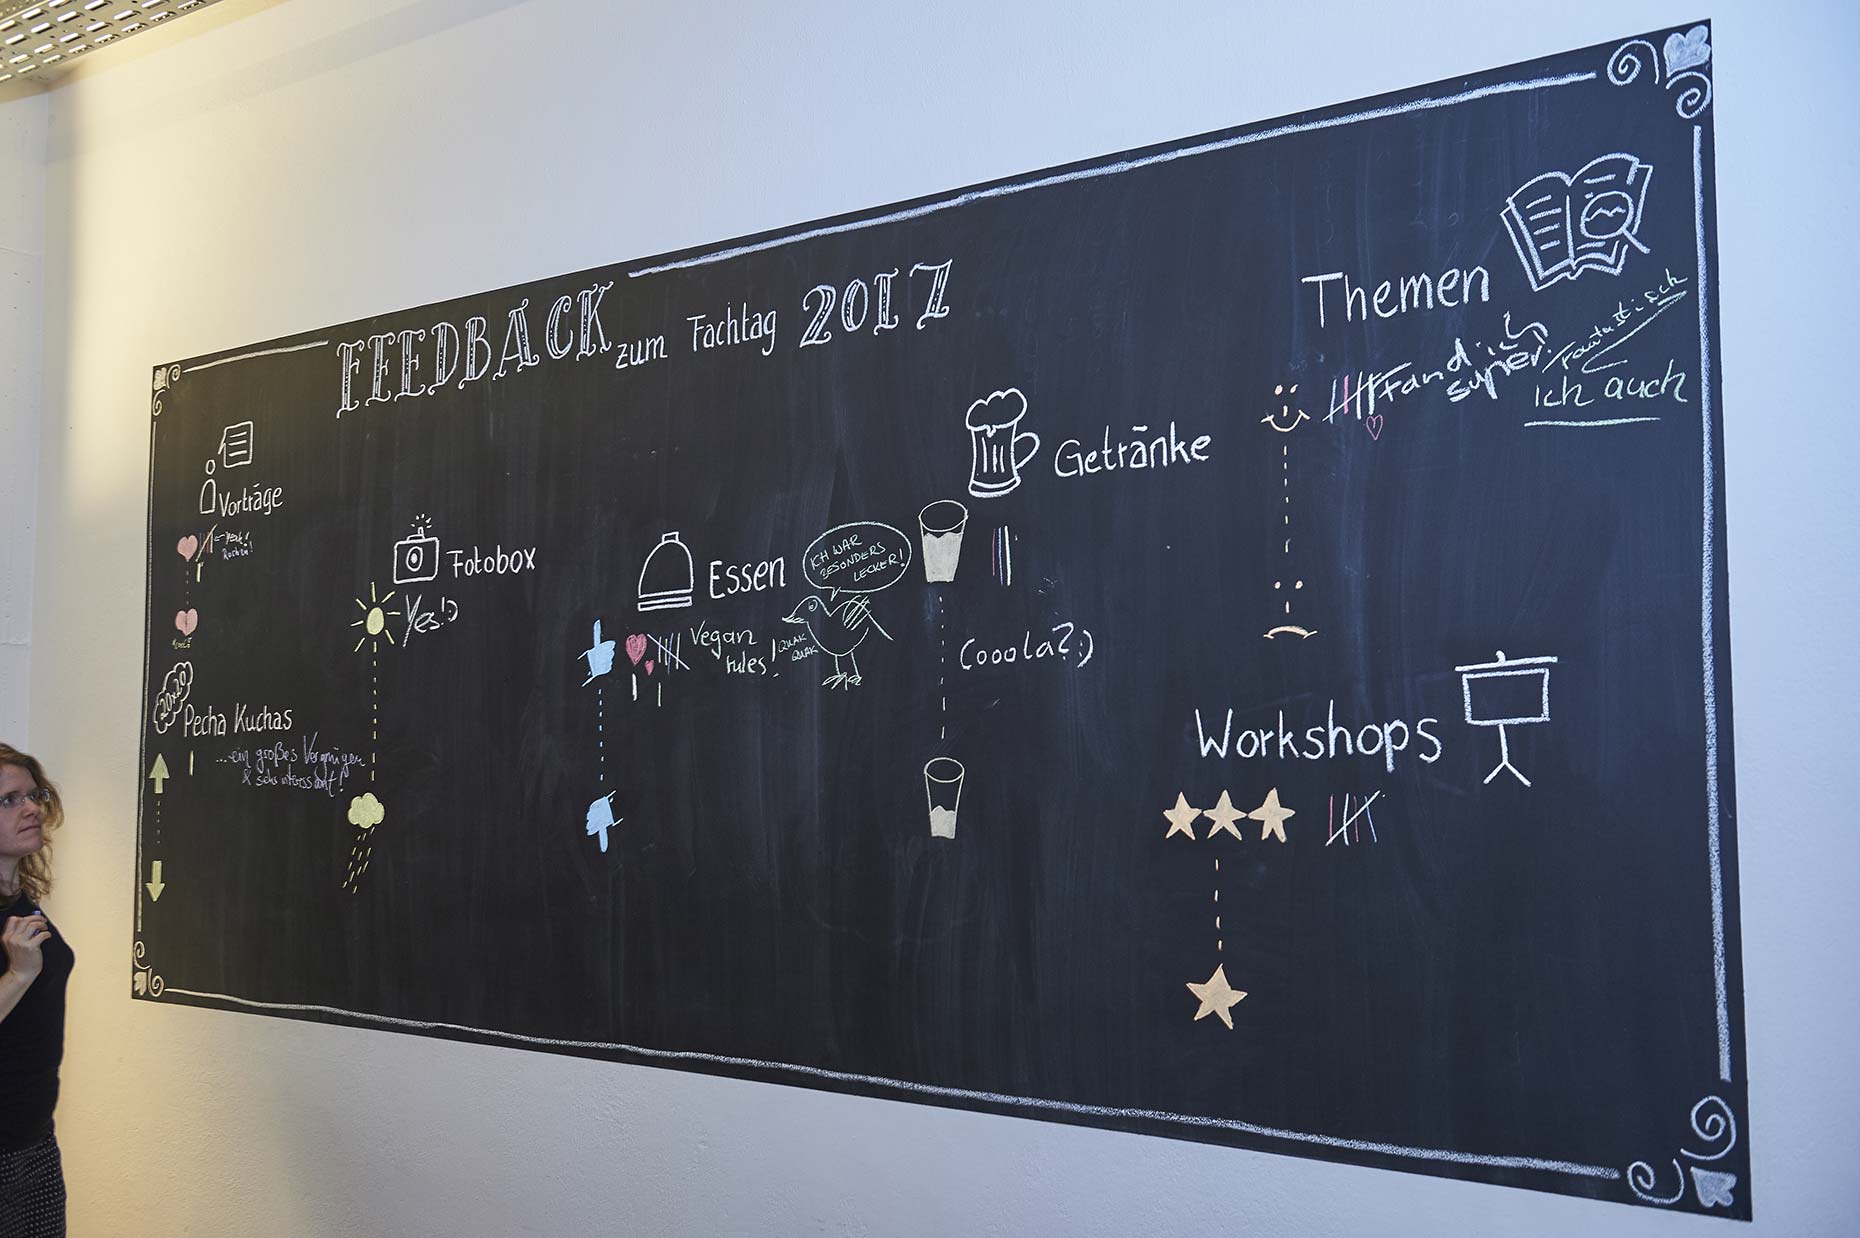 FEEDBACK zum Fachtag 2017
Vorträge
Kuchen!
Pecha Kuchas
20x20
...ein großes Vergnügen
& sehr interessant!
Fotobox
Yes!:)
Essen
Vegan
rules!
QUAK
QUAK
ICH WAR
BESONDERS
LECKER!
Getränke
Cooola?:)
Themen
Fand ich
super!
fantastisch
ich auch
Workshops